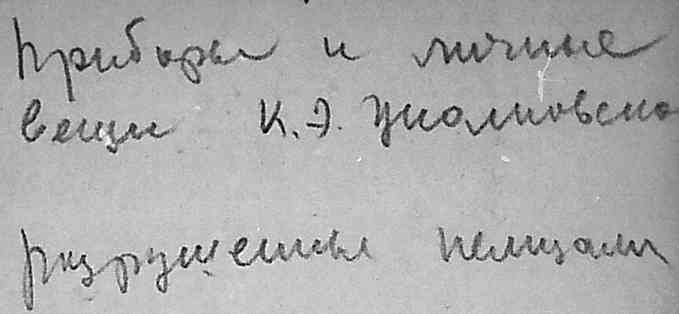 Приборы и личные
вещи К.Э. Циолковско
разрушенные немцами